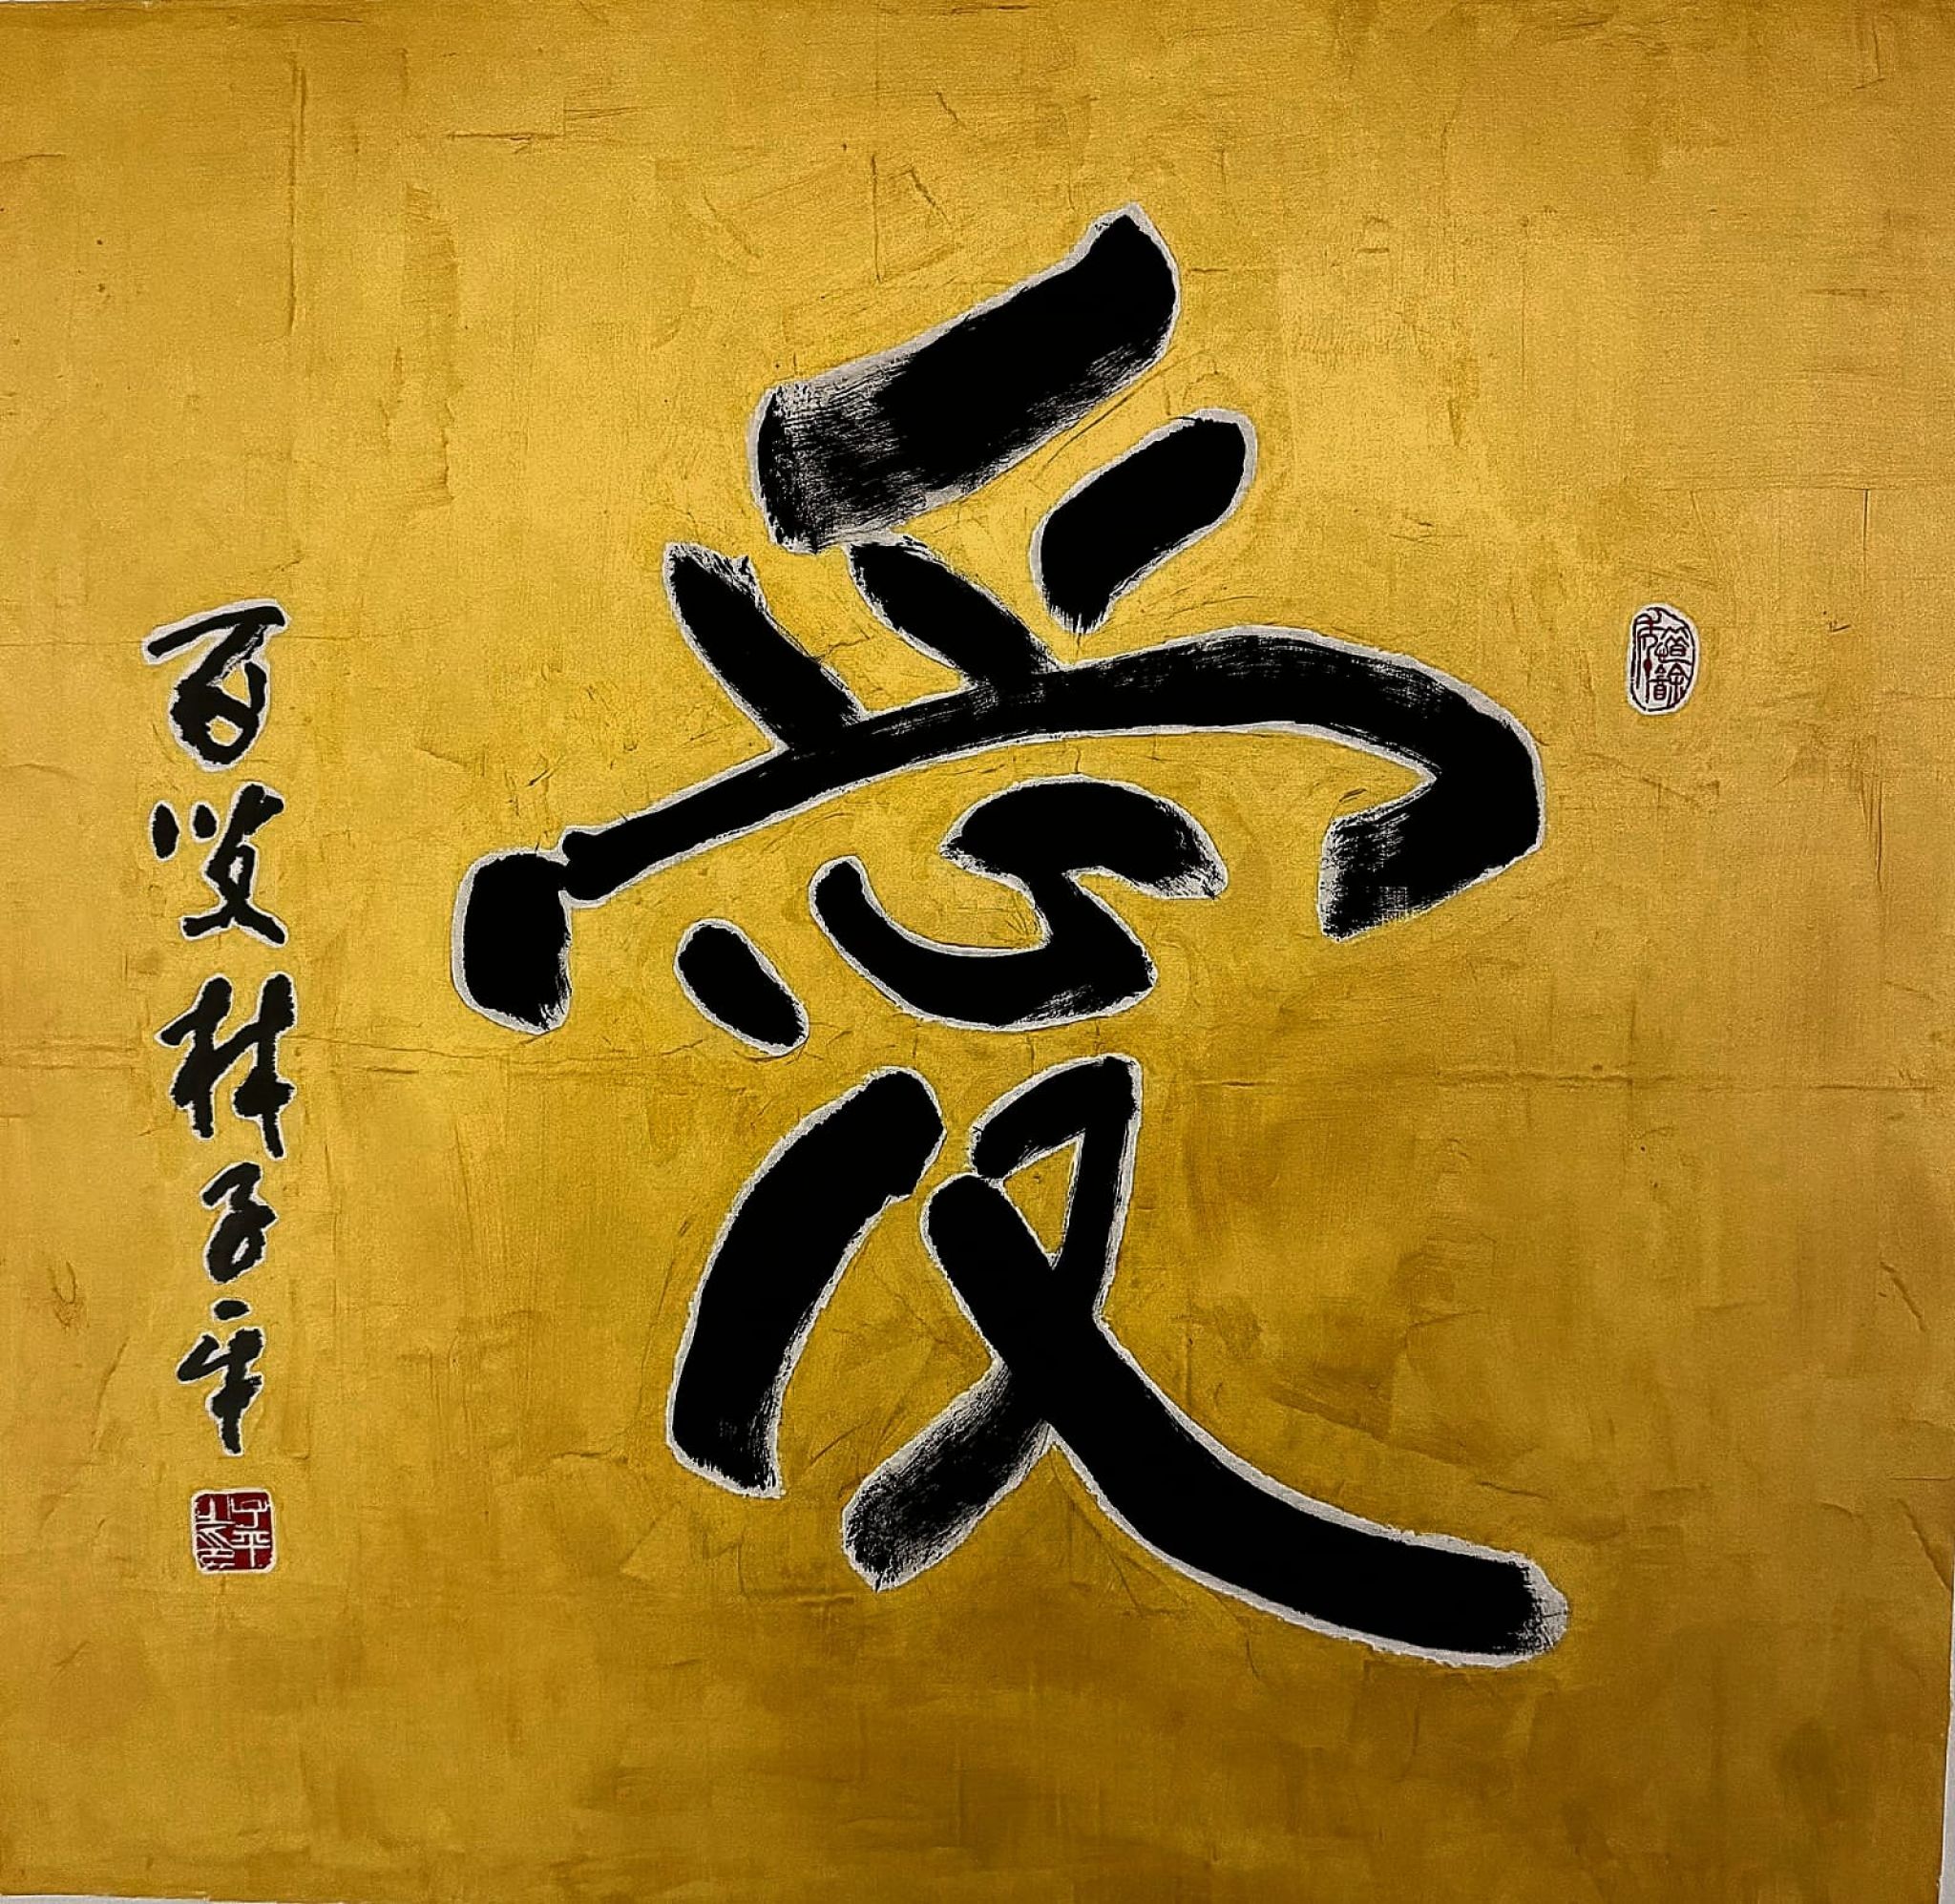 愛
百笑林子平